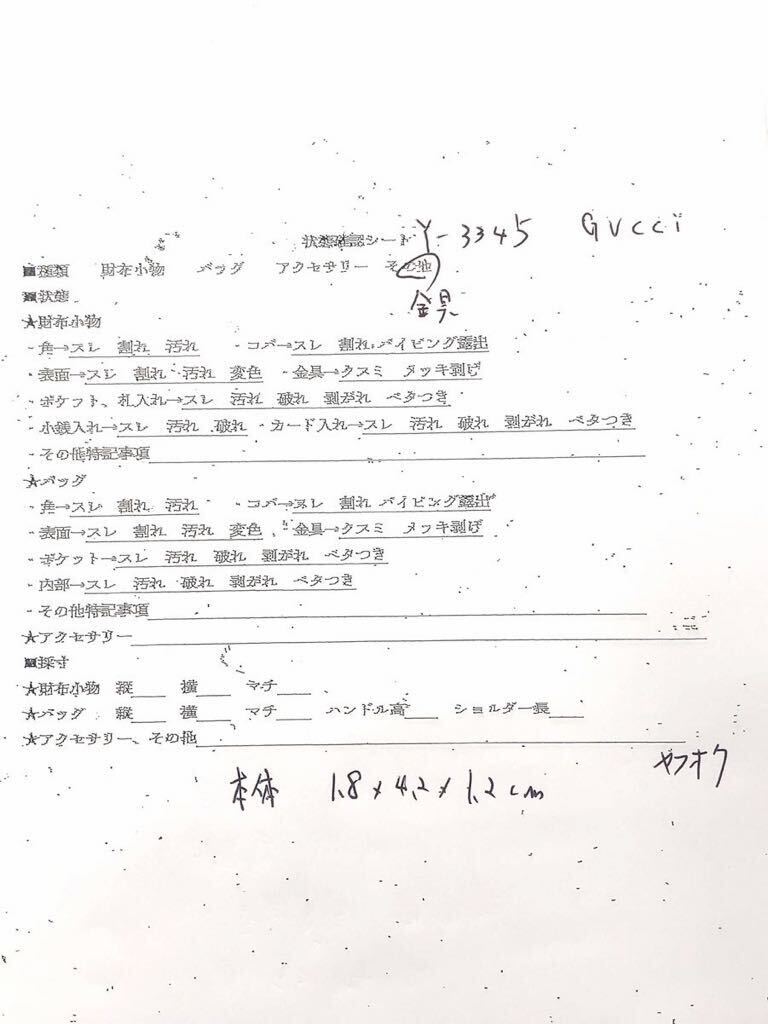 状態確認シート Y-3345 GUCCI
■種類 財布小物 バッグ アクセサリー その他
金具
■状態
★財布小物
・角→スレ 割れ 汚れ ・コバ→スレ 割れ パイピング露出
・表面→スレ 割れ 汚れ 変色 ・金具→クスミ メッキ剥げ
・ポケット、札入れ→スレ 汚れ 破れ 剥がれ ベタつき
・小銭入れ→スレ 汚れ 破れ ・カード入れ→スレ 汚れ 破れ 剥がれ ベタつき
・その他特記事項
★バッグ
・角→スレ 割れ 汚れ ・コバ→スレ 割れ パイピング露出
・表面→スレ 割れ 汚れ 変色 ・金具→クスミ メッキ剥げ
・ポケット→スレ 汚れ 破れ 剥がれ ベタつき
・内部→スレ 汚れ 破れ 剥がれ ベタつき
・その他特記事項
★アクセサリー
■採寸
★財布小物 縦 横 マチ
★バッグ 縦 横 マチ ハンドル高 ショルダー長
★アクセサリー、その他
ヤフオク
本体 1.8×4.2×1.2cm